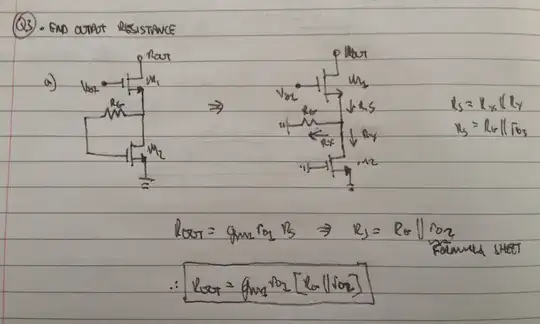 Q3. FIND OUTPUT RESISTANCE
a)
ROUT
M1
RF
M2
⇒
ROUT
RF
RS
RX
RY
M2
RS = RX || RY
RS = RF || ro2
ROUT = gm1 ro1 RS ⇒ RS = RF || ro2
FORMULA SHEET
∴ ROUT = gm1 ro1 [RF || ro2]